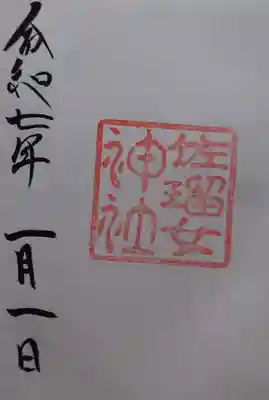 佐瑠女
神社
令和七年 一月一日